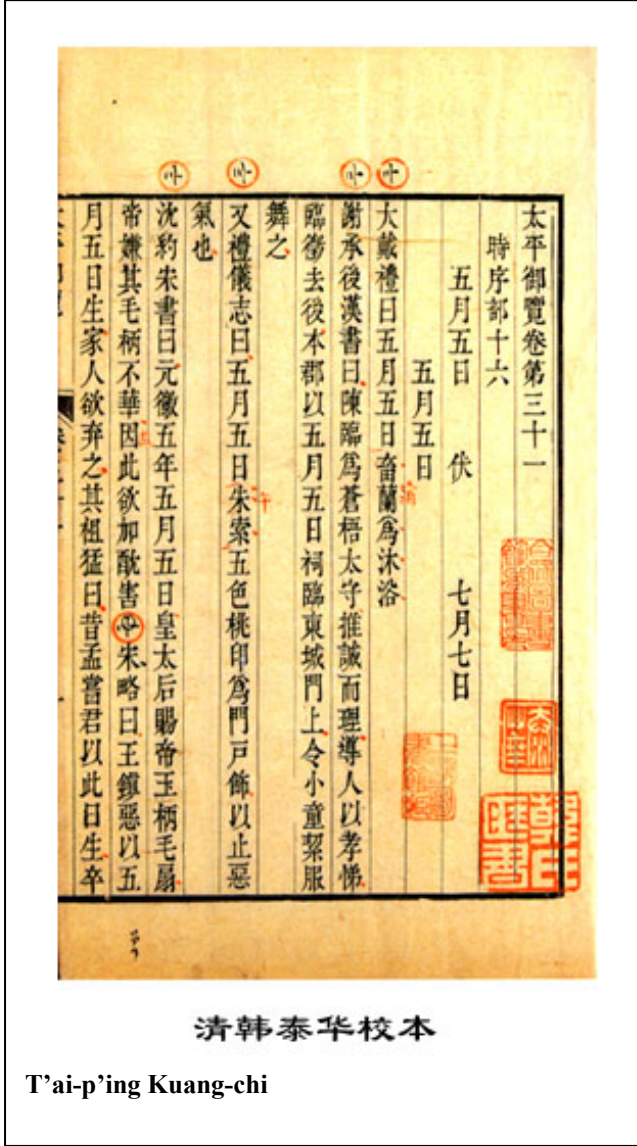 太平御覽卷第三十一
時序部十六
五月五日 伏 七月七日
五月五日
大戴禮曰五月五日畜蘭爲沐浴
謝承後漢書曰陳臨爲蒼梧太守推誠而理導人以孝悌
臨徵去後本郡以五月五日祠臨東城門上令小童絜服
舞之
又禮儀志曰五月五日朱索五色桃印爲門戸飾以止惡
氣也
沈豹朱書曰元徽五年五月五日皇太后賜帝玉柄毛扇
帝嫌其毛柄不華因此欲加酖害宋略曰王鎮惡以五
月五日生家人欲弃之其祖猛曰昔孟嘗君以此日生卒
清韩泰华校本
T’ai-p’ing Kuang-chi